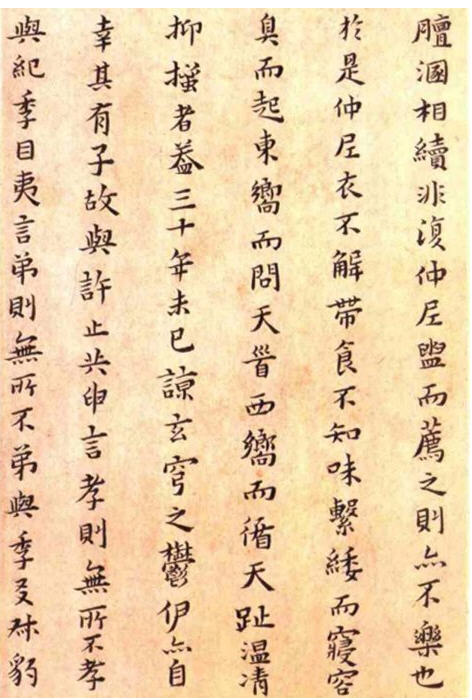 膻溷相續非復仲尼盥而薦之則亦不樂也
於是仲尼衣不解帶食不知味繫緌而寢容
臭而起東嚮而問天眥西嚮而循天趾温凊
抑搔者葢三十年未已諒玄穹之鬱伊亦自
幸其有子故與許止共申言孝則無所不孝
與紀季目夷言弟則無所不弟與季友叔豹